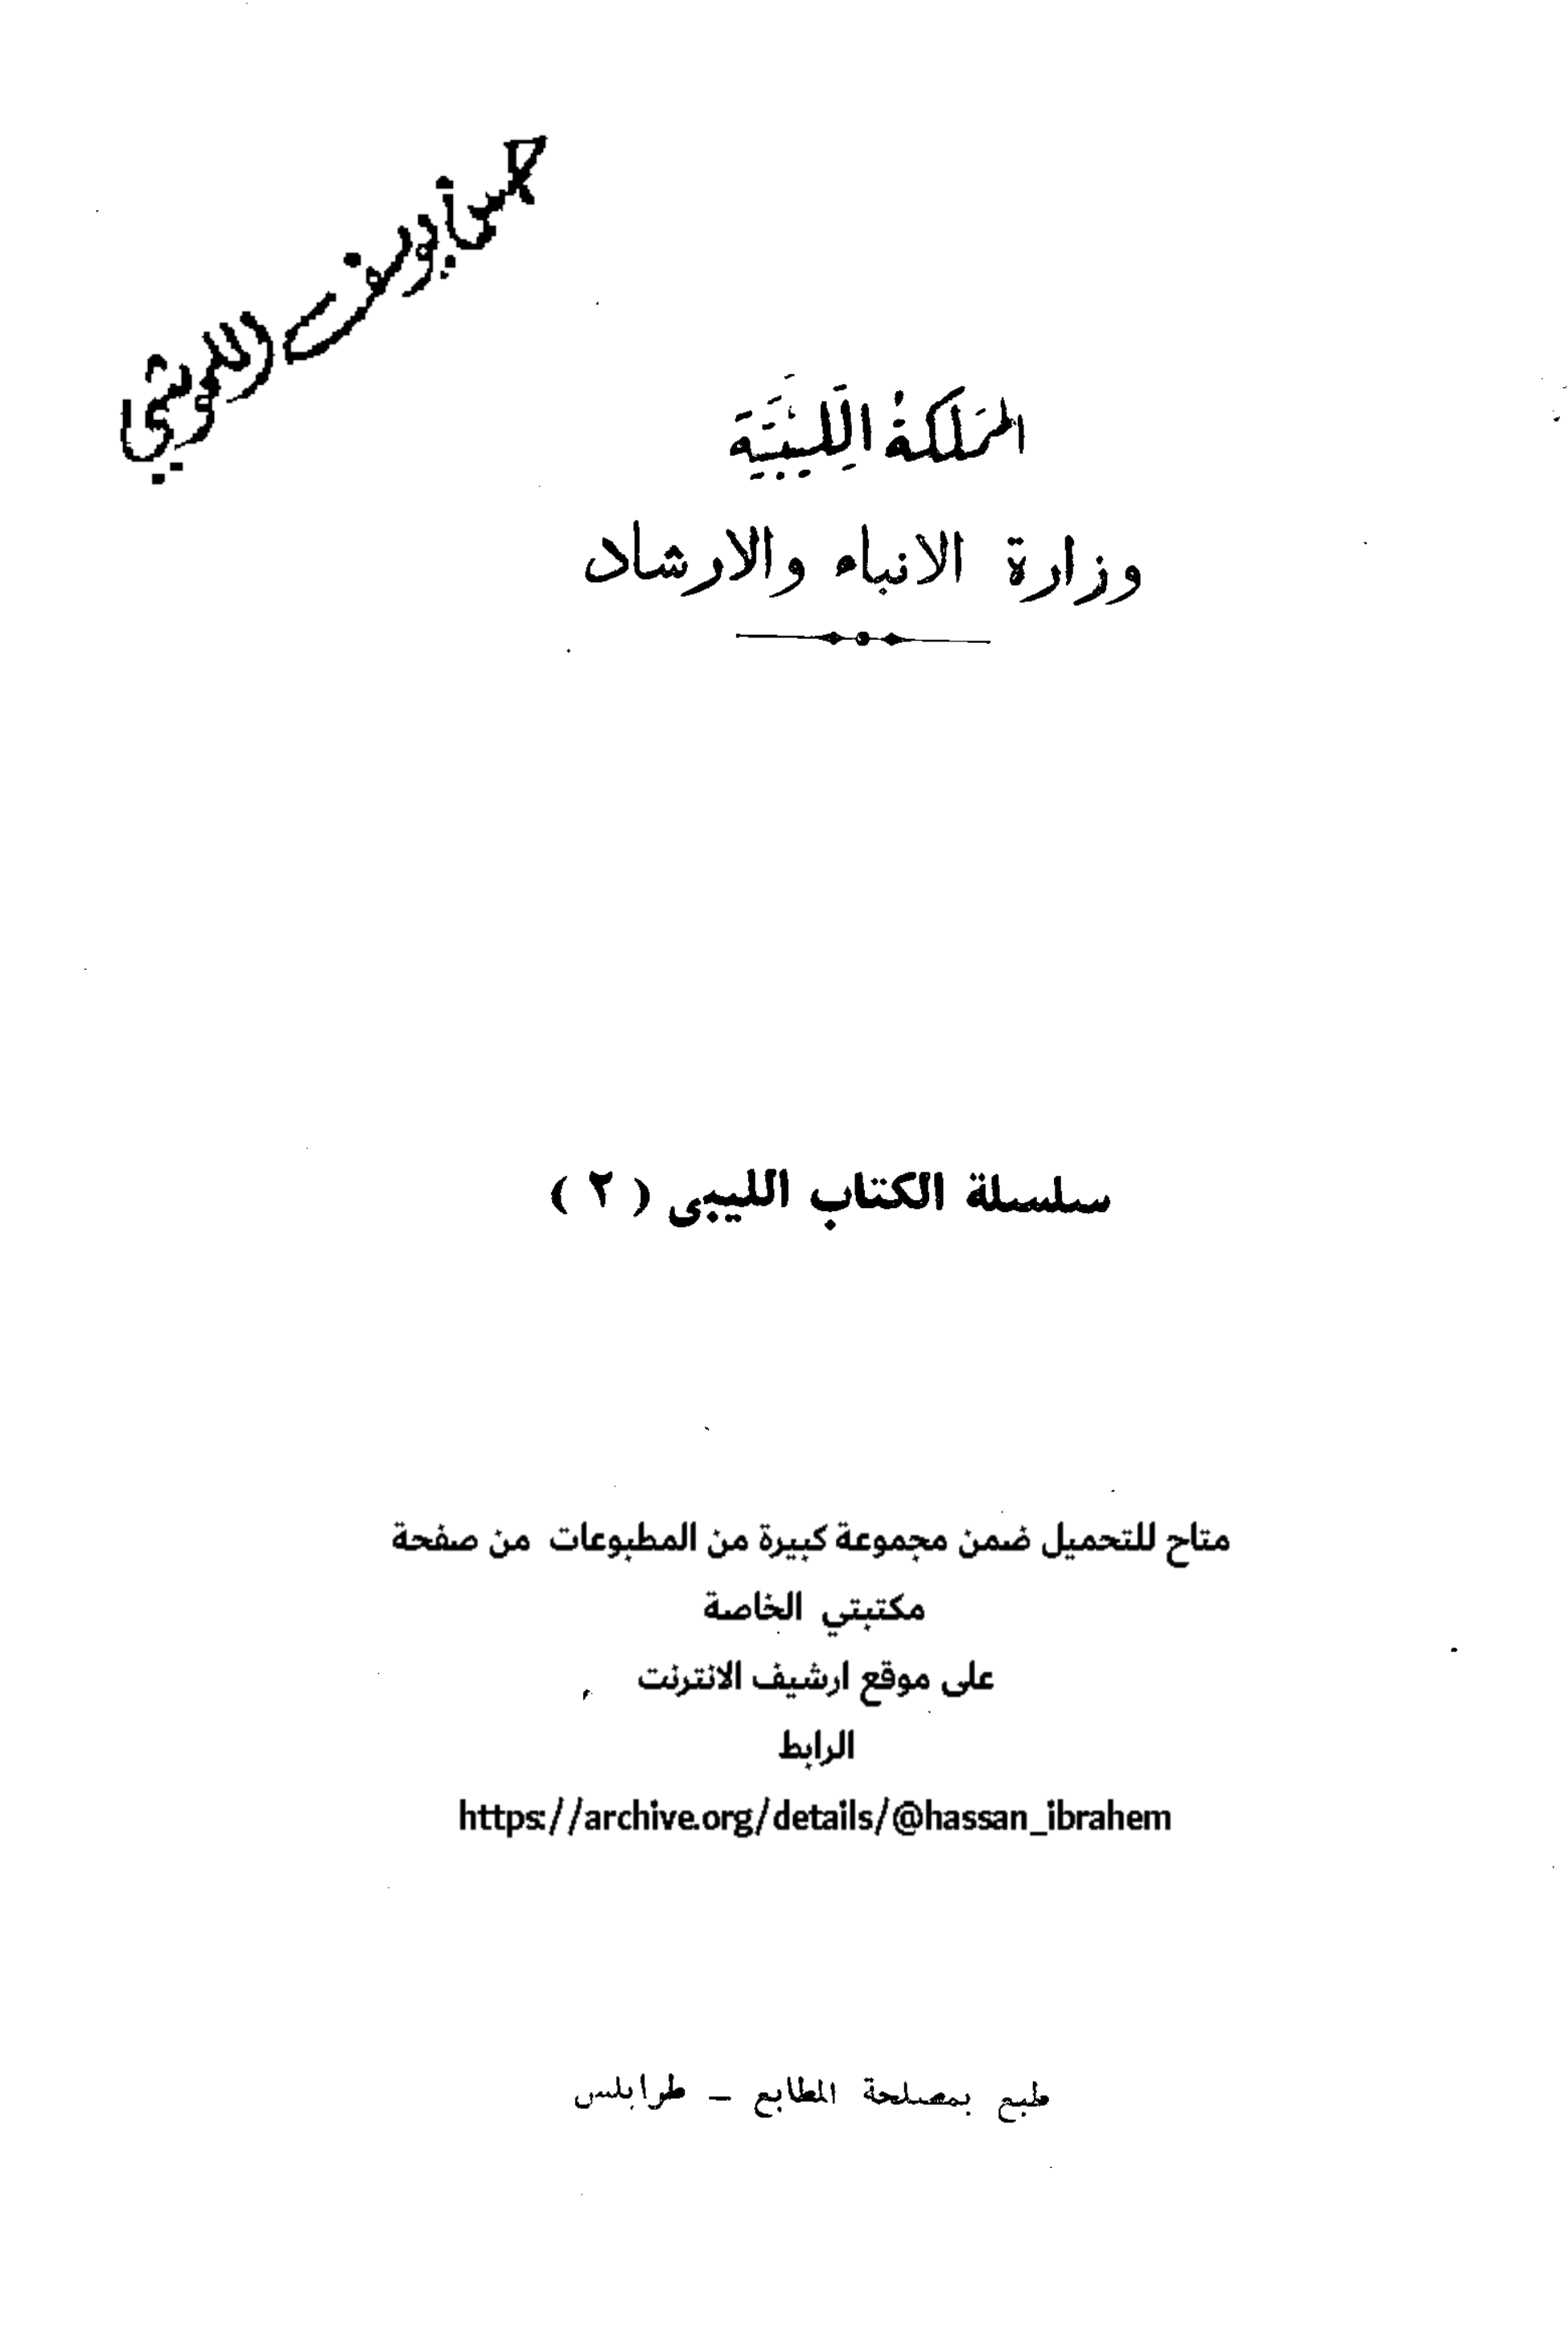 المَملَكَةُ اللِّيبِيَّة
وزارة الانباء والارشاد
سلسلة الكتاب الليبى ( ٢ )
متاح للتحميل ضمن مجموعة كبيرة من المطبوعات من صفحة
مكتبتي الخاصة
على موقع ارشيف الانترنت
الرابط
https://archive.org/details/@hassan_ibrahem
طبع بمصلحة المطابع – طرابلس